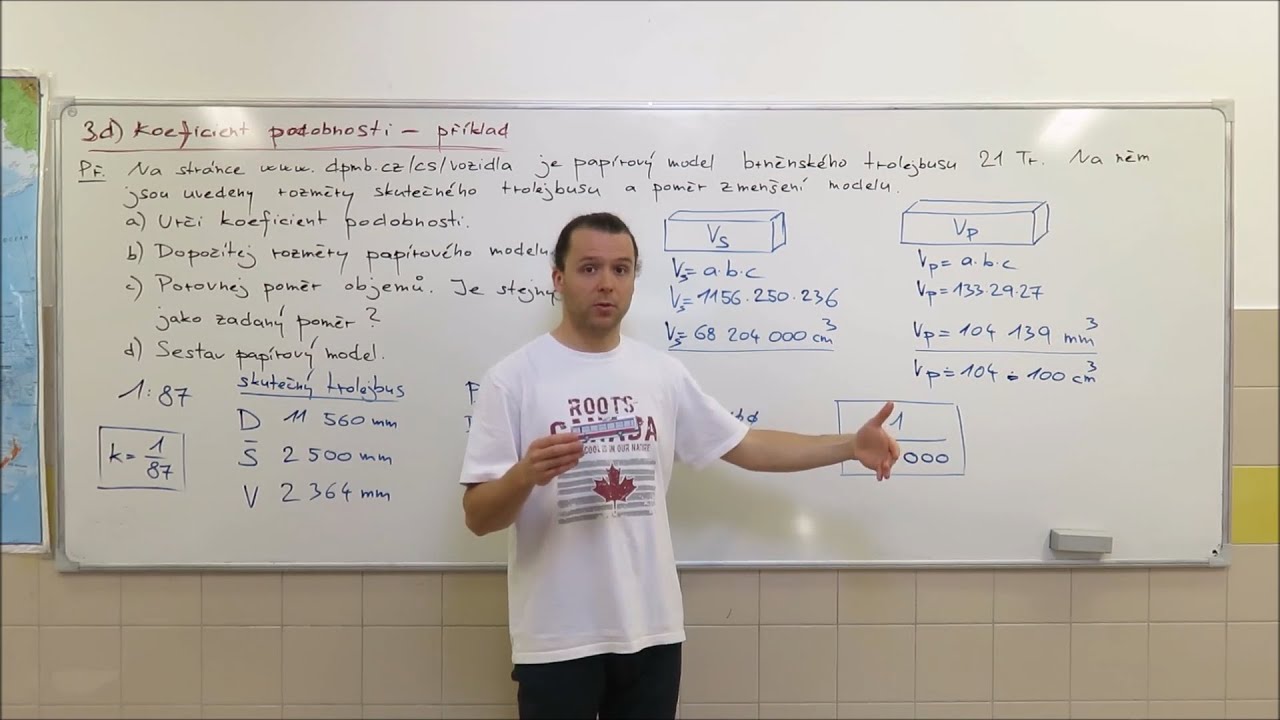 3d) Koeficient podobnosti – příklad
Př. Na stránce www.dpmb.cz/cs/vozidla je papírový model brněnského trolejbusu 21 Tr. Na něm
jsou uvedeny rozměry skutečného trolejbusu a poměr zmenšení modelu.
a) Urči koeficient podobnosti.
b) Dopočítej rozměry papírového modelu
c) Porovnej poměr objemů. Je stejný
jako zadaný poměr?
d) Sestav papírový model.
1:87
k = 1/87
skutečný trolejbus
D 11 560 mm
Š 2 500 mm
V 2 364 mm
Vs
Vs = a·b·c
Vs = 1156·250·236
Vs = 68 204 000 cm³
Vp
Vp = a·b·c
Vp = 133·29·27
Vp = 104 139 mm³
Vp ≐ 104.100 cm³
1
000
ROOTS
CANADA
COOL IS IN OUR NATURE